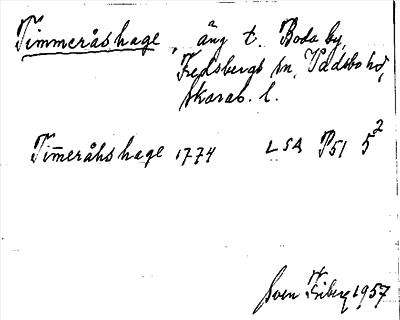 Timmeråshage, äng t. Boda by,
Fredsbergs sn, Vadsbo hd,
Skarab. l.
Tim̅eråhshage 1774 LSA P51 5²
Sven Friberg 1957